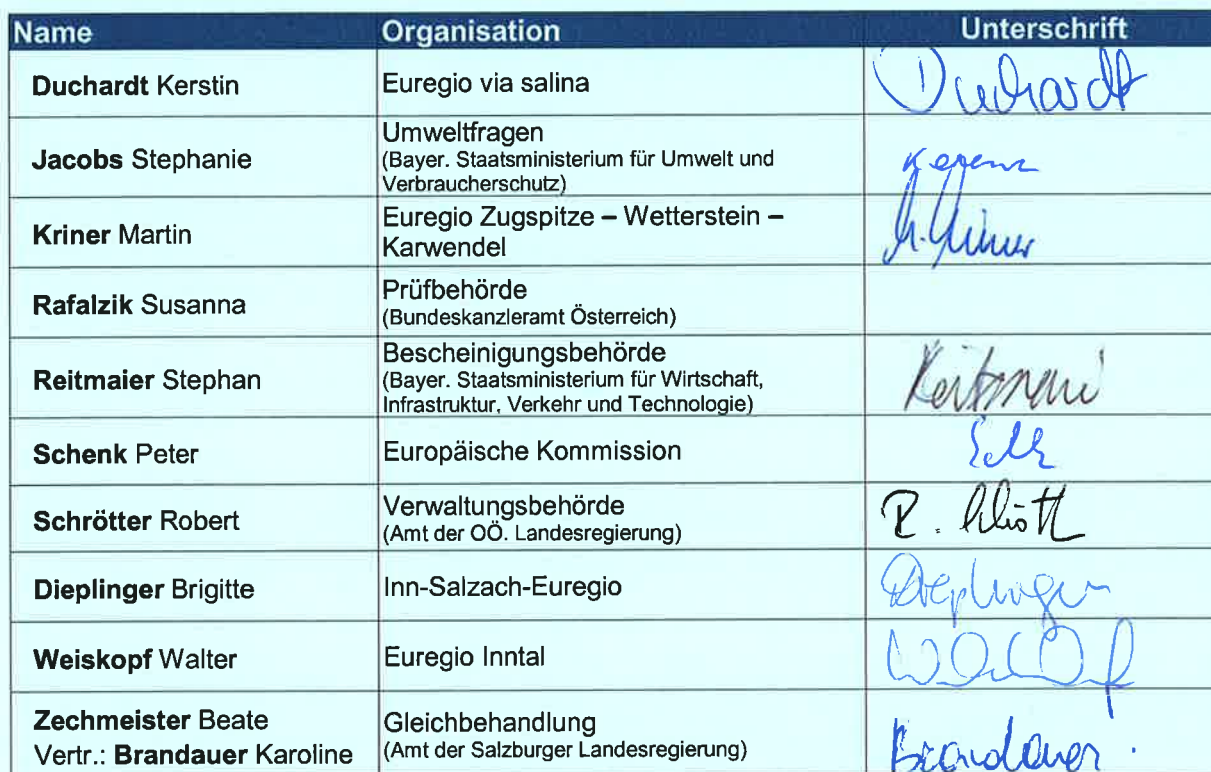 Name Organisation Unterschrift
Duchardt Kerstin Euregio via salina Duchardt
Umweltfragen
Jacobs Stephanie (Bayer. Staatsministerium für Umwelt und
Verbraucherschutz)
Kriner Martin Euregio Zugspitze – Wetterstein –
Karwendel
Rafalzik Susanna Prüfbehörde
(Bundeskanzleramt Österreich)
Bescheinigungsbehörde
Reitmaier Stephan (Bayer. Staatsministerium für Wirtschaft,
Infrastruktur, Verkehr und Technologie)
Schenk Peter Europäische Kommission
Schrötter Robert Verwaltungsbehörde
(Amt der OÖ. Landesregierung)
Dieplinger Brigitte Inn-Salzach-Euregio Dieplinger
Weiskopf Walter Euregio Inntal
Zechmeister Beate Gleichbehandlung
Vertr.: Brandauer Karoline (Amt der Salzburger Landesregierung) Brandauer